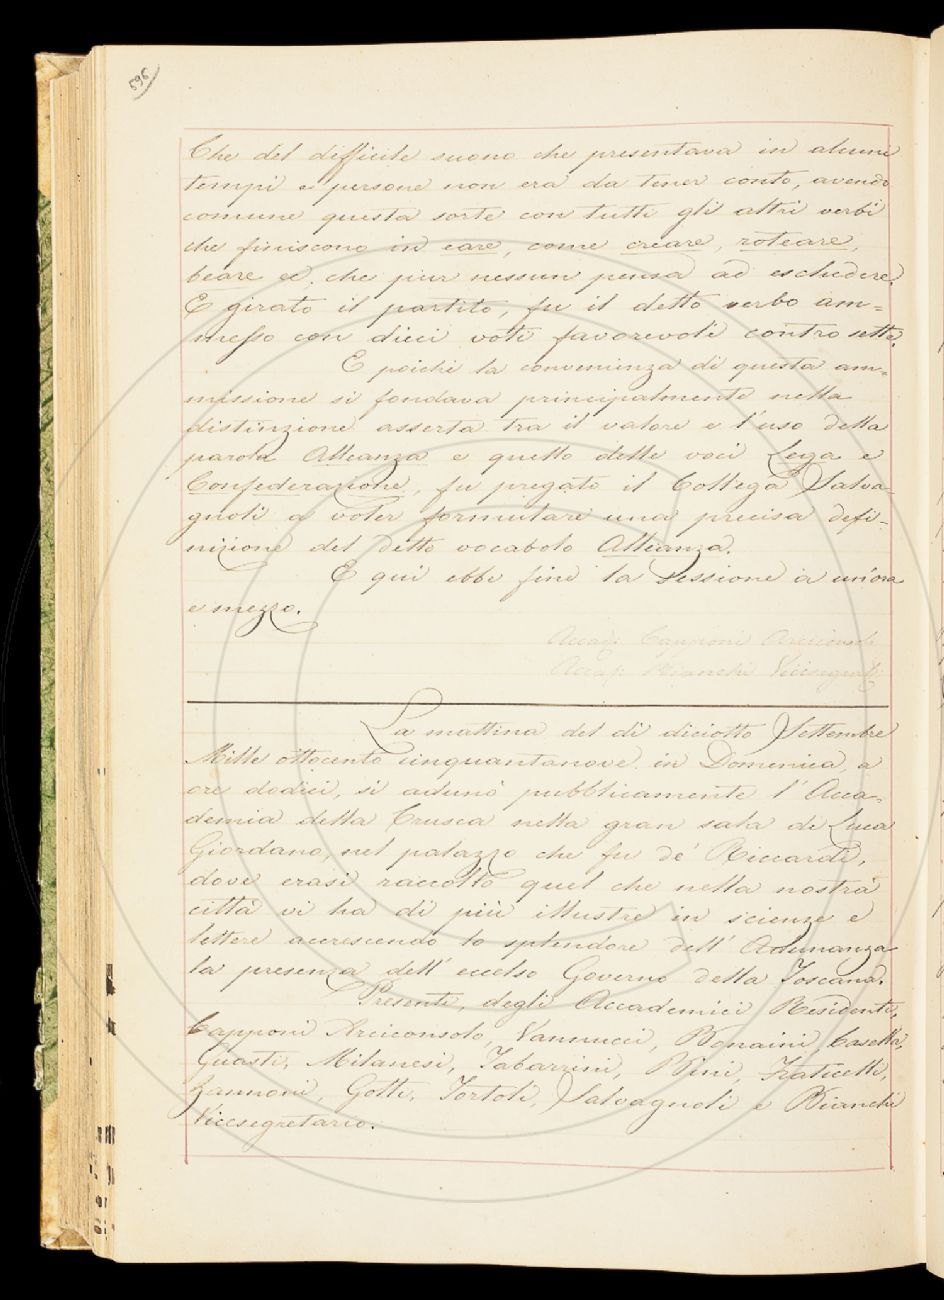 596
Che del difficile suono che presentava in alcuni
tempi e persone non era da tener conto, avendo
comune questa sorte con tutti gli altri verbi
che finiscono in eare, come creare, roteare,
beare ec. che pur nessun pensa ad escludere.
E girato il partito, fu il detto verbo am=
messo con dieci voti favorevoli contro sette.
E poichè la convenienza di questa am=
missione si fondava principalmente nella
distinzione asserta tra il valore e l'uso della
parola Alleanza e quello delle voci Lega e
Confederazione, fu pregato il Collega Salva=
gnoli a voler formulare una precisa defi=
nizione del detto vocabolo Alleanza.
E qui ebbe fine la Sessione a un'ora
e mezzo.
Accad. Capponi Arciconsolo
Accad. Bianchi Vicesegret.
La mattina del dì diciotto Settembre
Mille ottocento cinquantanove in Domenica, a
ore dodici, si adunò pubblicamente l'Acca=
demia della Crusca nella gran sala di Luca
Giordano, nel palazzo che fu de' Riccardi,
dove erasi raccolto quel che nella nostra
città vi ha di più illustre in scienze e
lettere accrescendo lo splendore dell'Adunanza
la presenza dell'eccelso Governo della Toscana.
Presenti, degli Accademici Residenti,
Capponi Arciconsolo, Vannucci, Bonaini, Casella,
Guasti, Milanesi, Tabarrini, Bini, Fraticelli,
Zannoni, Gotti, Tortoli, Salvagnoli e Bianchi
Vicesegretario.